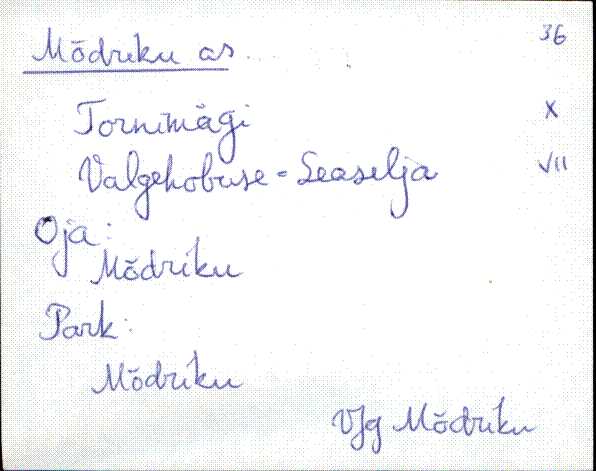 36
Mõdriku as.
Tornimägi X
Valgehobuse-Seaselja VII
Oja:
Mõdriku
Park:
Mõdriku
VJg Mõdriku